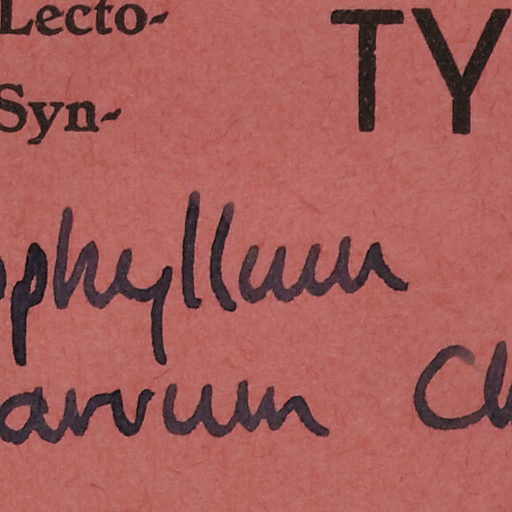 Lecto-
TY
Syn-
ophyllum
arvum Ch